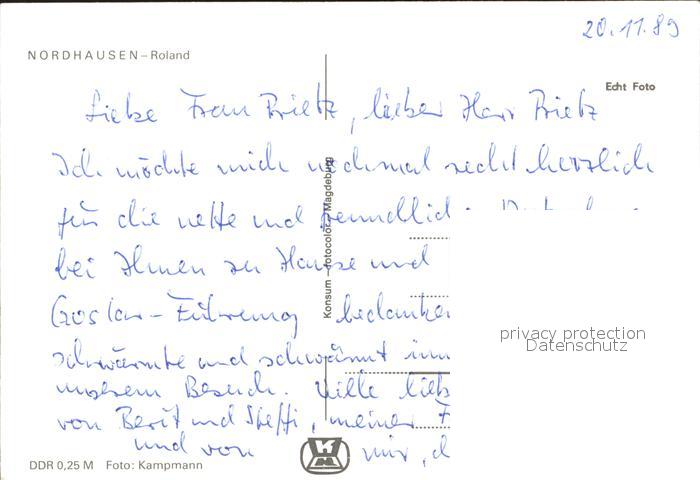 20.11.89
NORDHAUSEN – Roland
Echt Foto
Liebe Frau Brietz, lieber Herr Brietz
Ich möchte mich nochmal recht herzlich
für die nette und freundlich
bei Ihnen zu Hause und
Goslar-Führung bedanke
schwärmte und schwärmt imm
unserem Besuch. Viele lieb
von Berit und Steffi, meiner F
und von mir, d
Konsum – fotocolor – Magdeburg
privacy protection
Datenschutz
DDR 0,25 M Foto: Kampmann